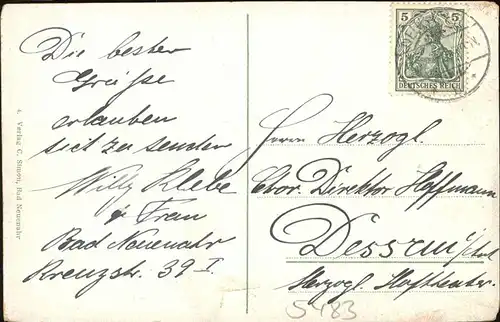 Die besten
Grüße
erlauben
sich zu senden
Willy Klebe
& Frau
Bad Neuenahr
Kreuzstr. 39 I.
4. Verlag C. Simon, Bad Neuenahr
5 5
DEUTSCHES REICH
Herrn Herzogl.
Chor. Direktor Hoffmann
Dessau i/Anh
Herzogl. Hoftheater.
5483